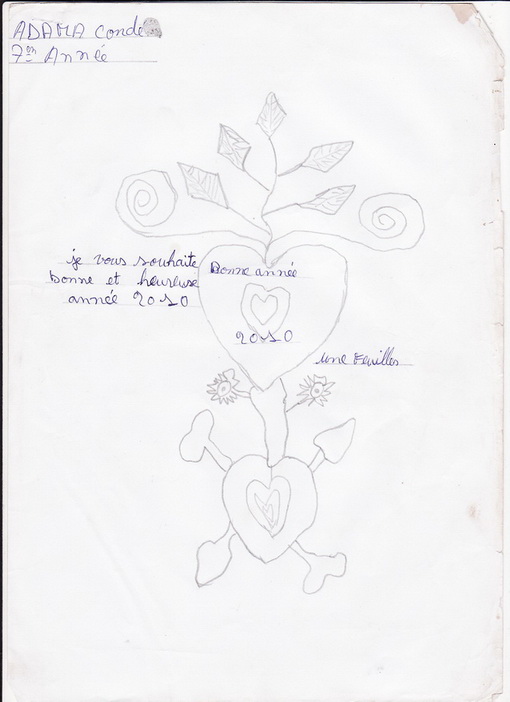 ADAMA Conde
7em Année
je vous souhaite
bonne et heureuse
année 2010
Bonne année
2010
une Feuilles